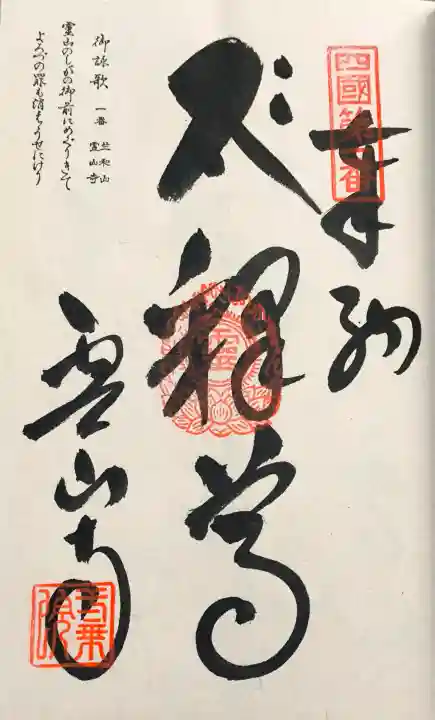 四國第一番
奉納
釋尊
霊山寺
御詠歌 一番 竺和山 霊山寺
霊山のしやかの御前にめぐりきて
よろづの罪も消えうせにけり